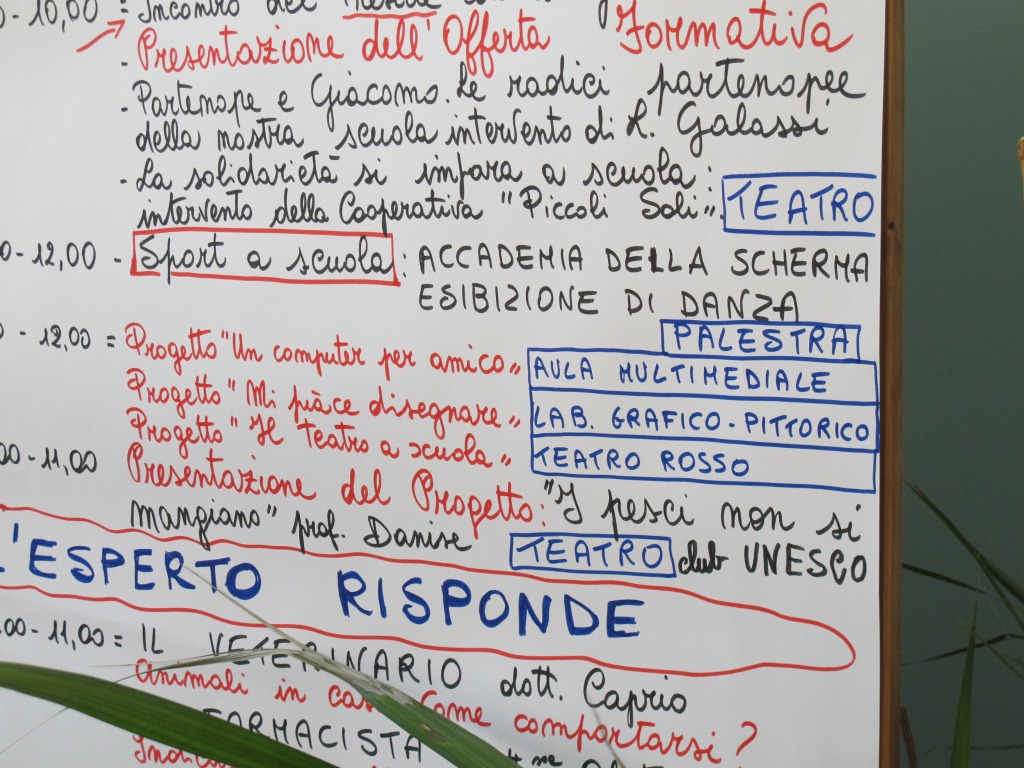 - 10,00 = Incontro del
- Presentazione dell'Offerta Formativa
- Partenope e Giacomo. Le radici partenopee
della nostra scuola intervento di R. Galassi
- La solidarietà si impara a scuola:
intervento della Cooperativa "Piccoli Soli". TEATRO
0-12,00 - Sport a scuola: ACCADEMIA DELLA SCHERMA
ESIBIZIONE DI DANZA
PALESTRA
0 - 12,00 = Progetto "Un computer per amico" AULA MULTIMEDIALE
Progetto "Mi piace disegnare" LAB. GRAFICO - PITTORICO
Progetto "Il Teatro a scuola" TEATRO ROSSO
00-11,00 Presentazione del Progetto: "I pesci non si
mangiano" prof. Danise TEATRO club UNESCO
L'ESPERTO RISPONDE
.00-11,00 = IL VETERINARIO dott. Caprio
Animali in casa Come comportarsi?
FARMACISTA